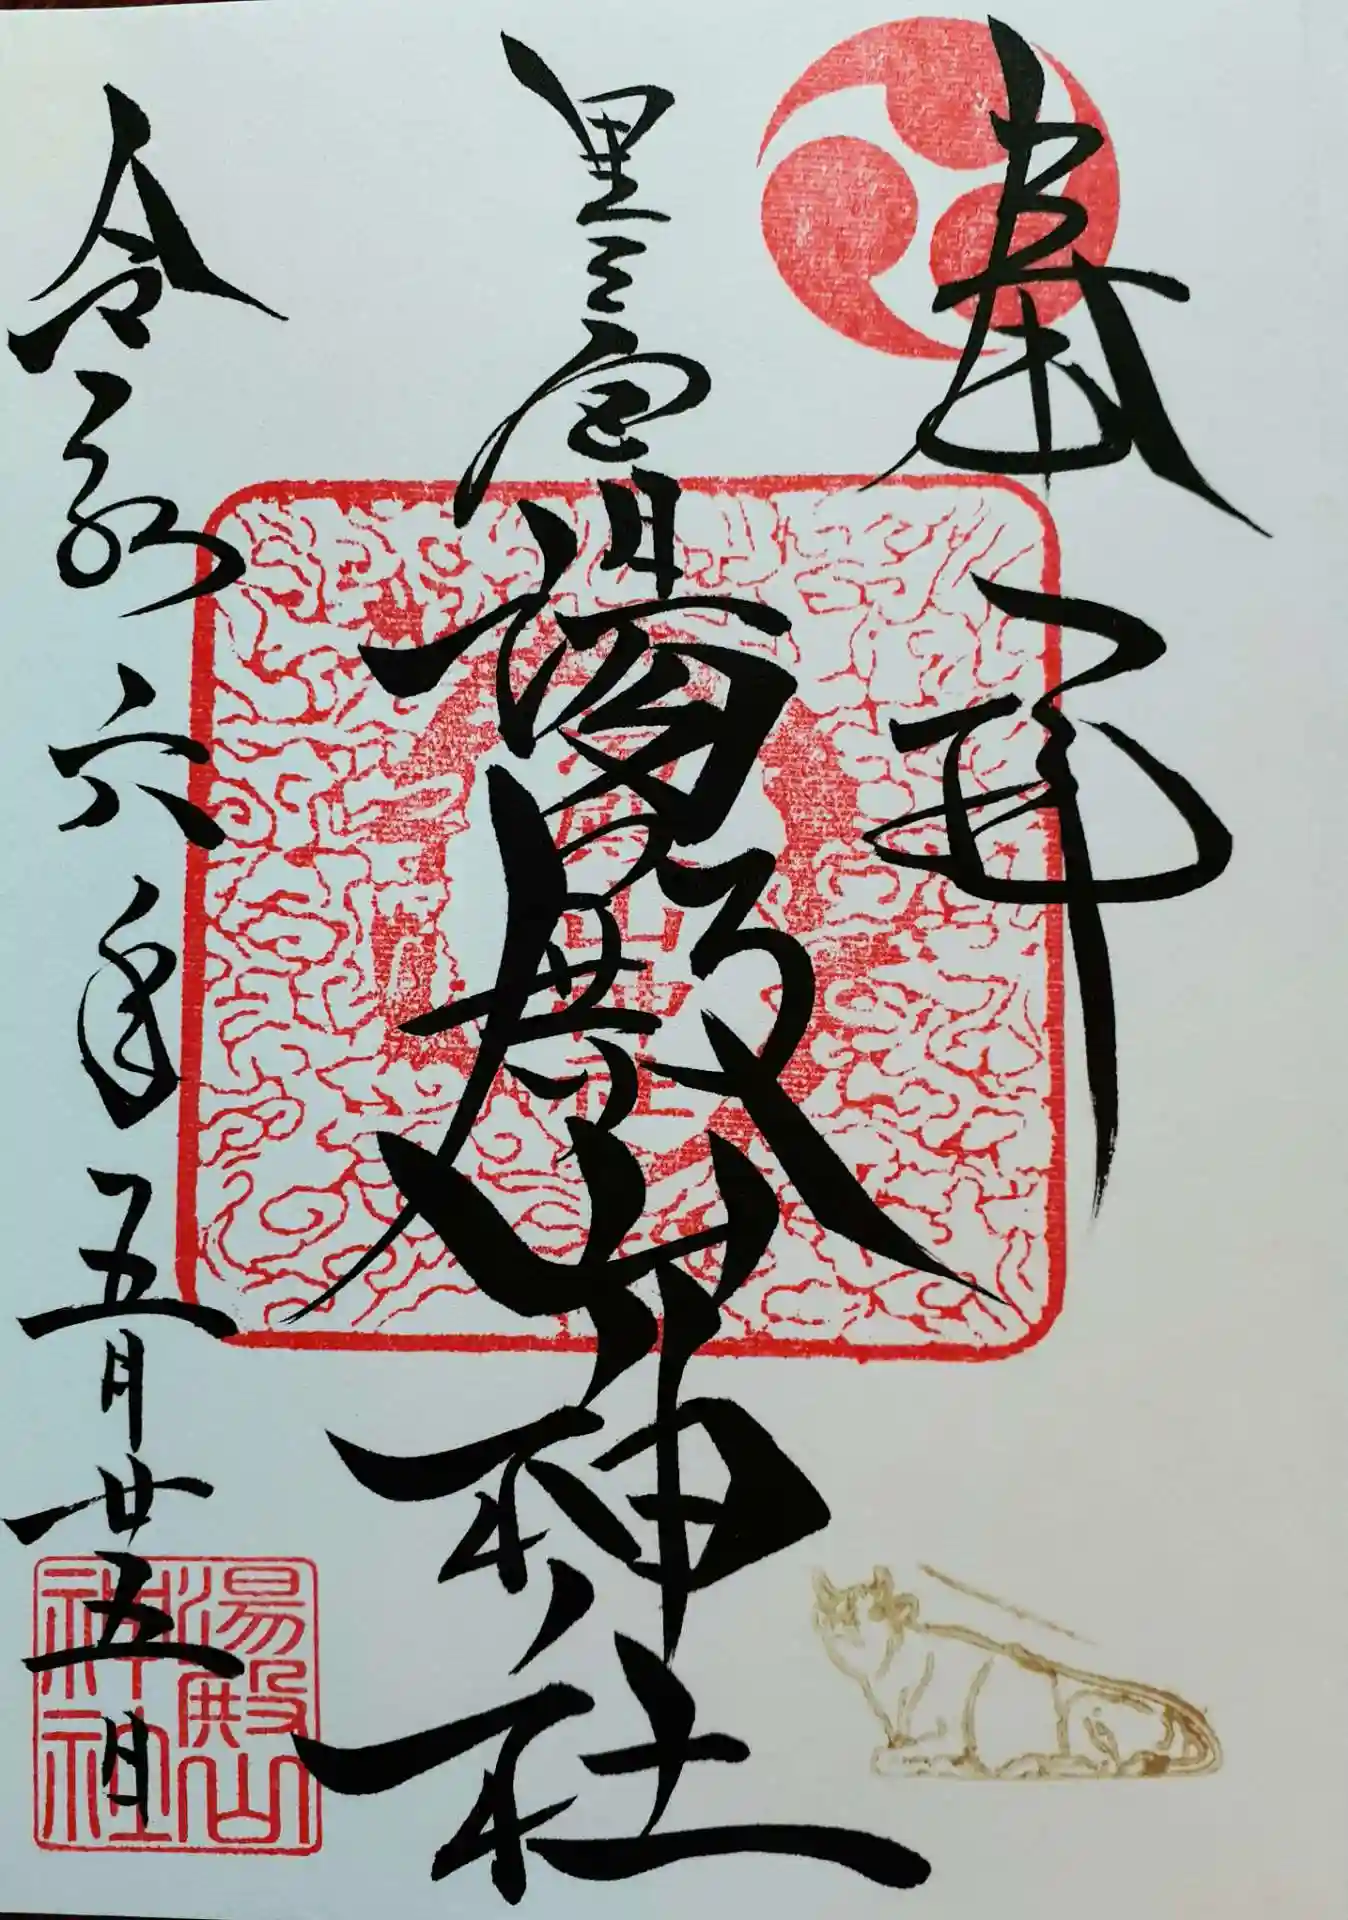 奉拝
里之宮湯殿山神社
令和六年五月廿五日
湯殿山
神社